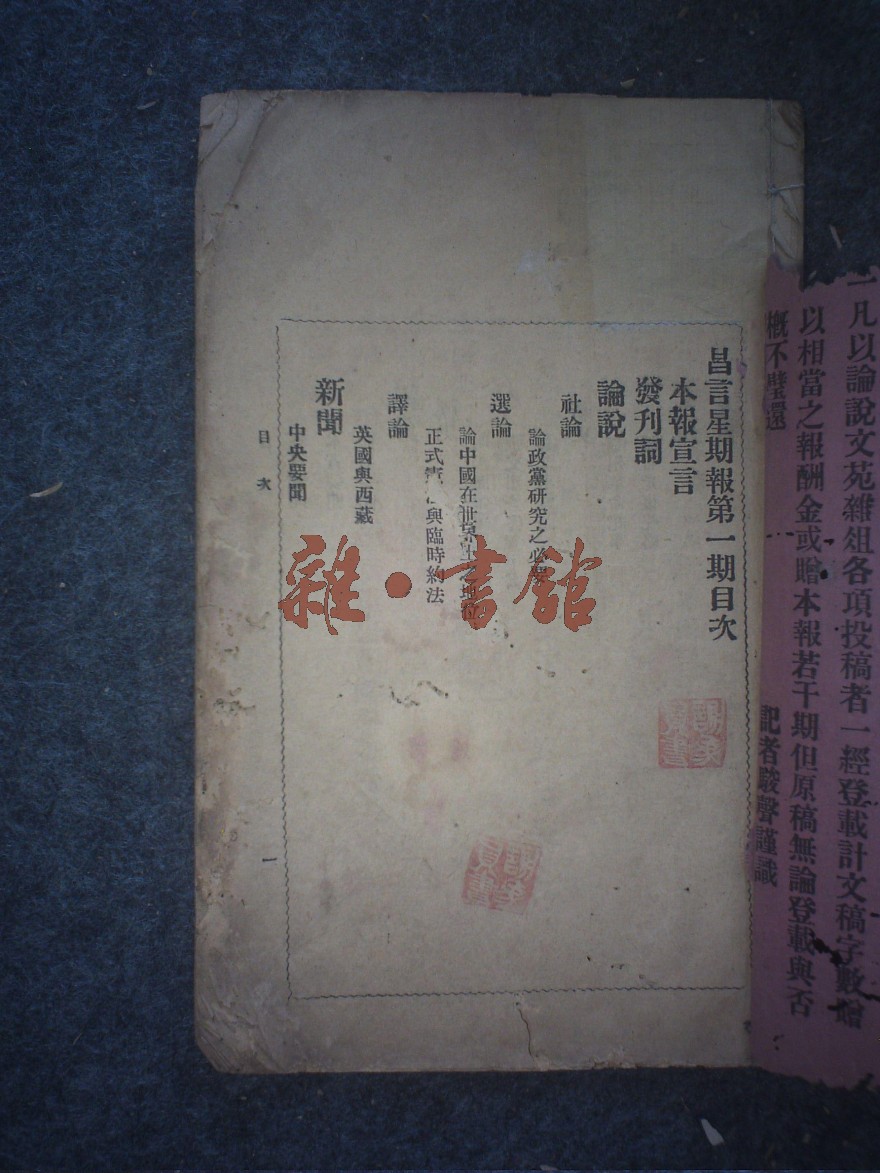 一凡以論說文苑雜俎各項投稿者一經登載計文稿字數贈
以相當之報酬金或贈本報若干期但原稿無論登載與否
概不璧還
記者駿聲謹識
昌言星期報第一期目次
本報宣言
發刊詞
論說
社論
論政黨研究之必要
選論
論中國在世界上之地位
正式憲 與臨時約法
譯論
英國與西藏
新聞
中央要聞
目次
一
雜·書館